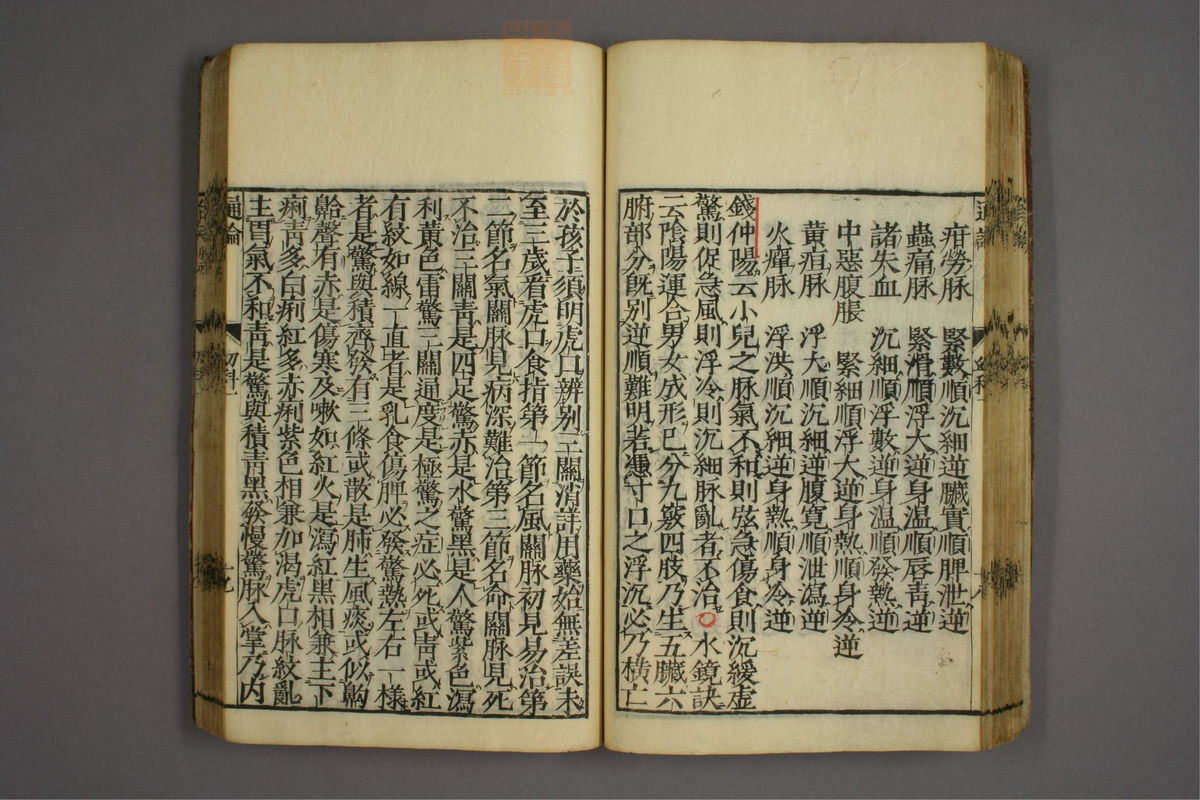 疳勞脉 緊數順沉細逆臟實順脾泄逆
蟲痛脉 緊滑順浮大逆身温順唇青逆
諸失血 沉細順浮數逆身温順發熱逆
中惡腹脹 緊細順浮大逆身熱順身冷逆
黄疸脉 浮大順沉細逆腹寛順泄瀉逆
火癉脉 浮洪順沉細逆身熱順身冷逆
錢仲陽云小兒之脉氣不和則弦急傷食則沉緩虚
驚則促急風則浮冷則沉細脉亂者不治○水鏡訣
云陰陽運合男女成形已分九竅四肢乃生五臟六
腑部分旣别逆順難明若憑寸口之浮沉必乃横亡
於孩子須明虎口辨别三關消詳用藥始無差誤未
至三歳看虎口食指第一節名風關脉初見易治第
二節名氣關脉見病深難治第三節名命關脉見死
不治三關青是四足驚赤是水驚黑是人驚紫色瀉
利黄色雷驚三關通度是極驚之症必死或青或紅
有紋如線一直者是乳食傷脾必發驚熱左右一樣
者是驚與積齊發有三條或散是肺生風痰或似齁
䶎聲有赤是傷寒及嗽如紅火是瀉紅黑相兼主下
痢青多白痢紅多赤痢紫色相兼加渇虎口脉紋亂
主胃氣不和青是驚與積青黑發慢驚脉入掌乃内
通論 幼科